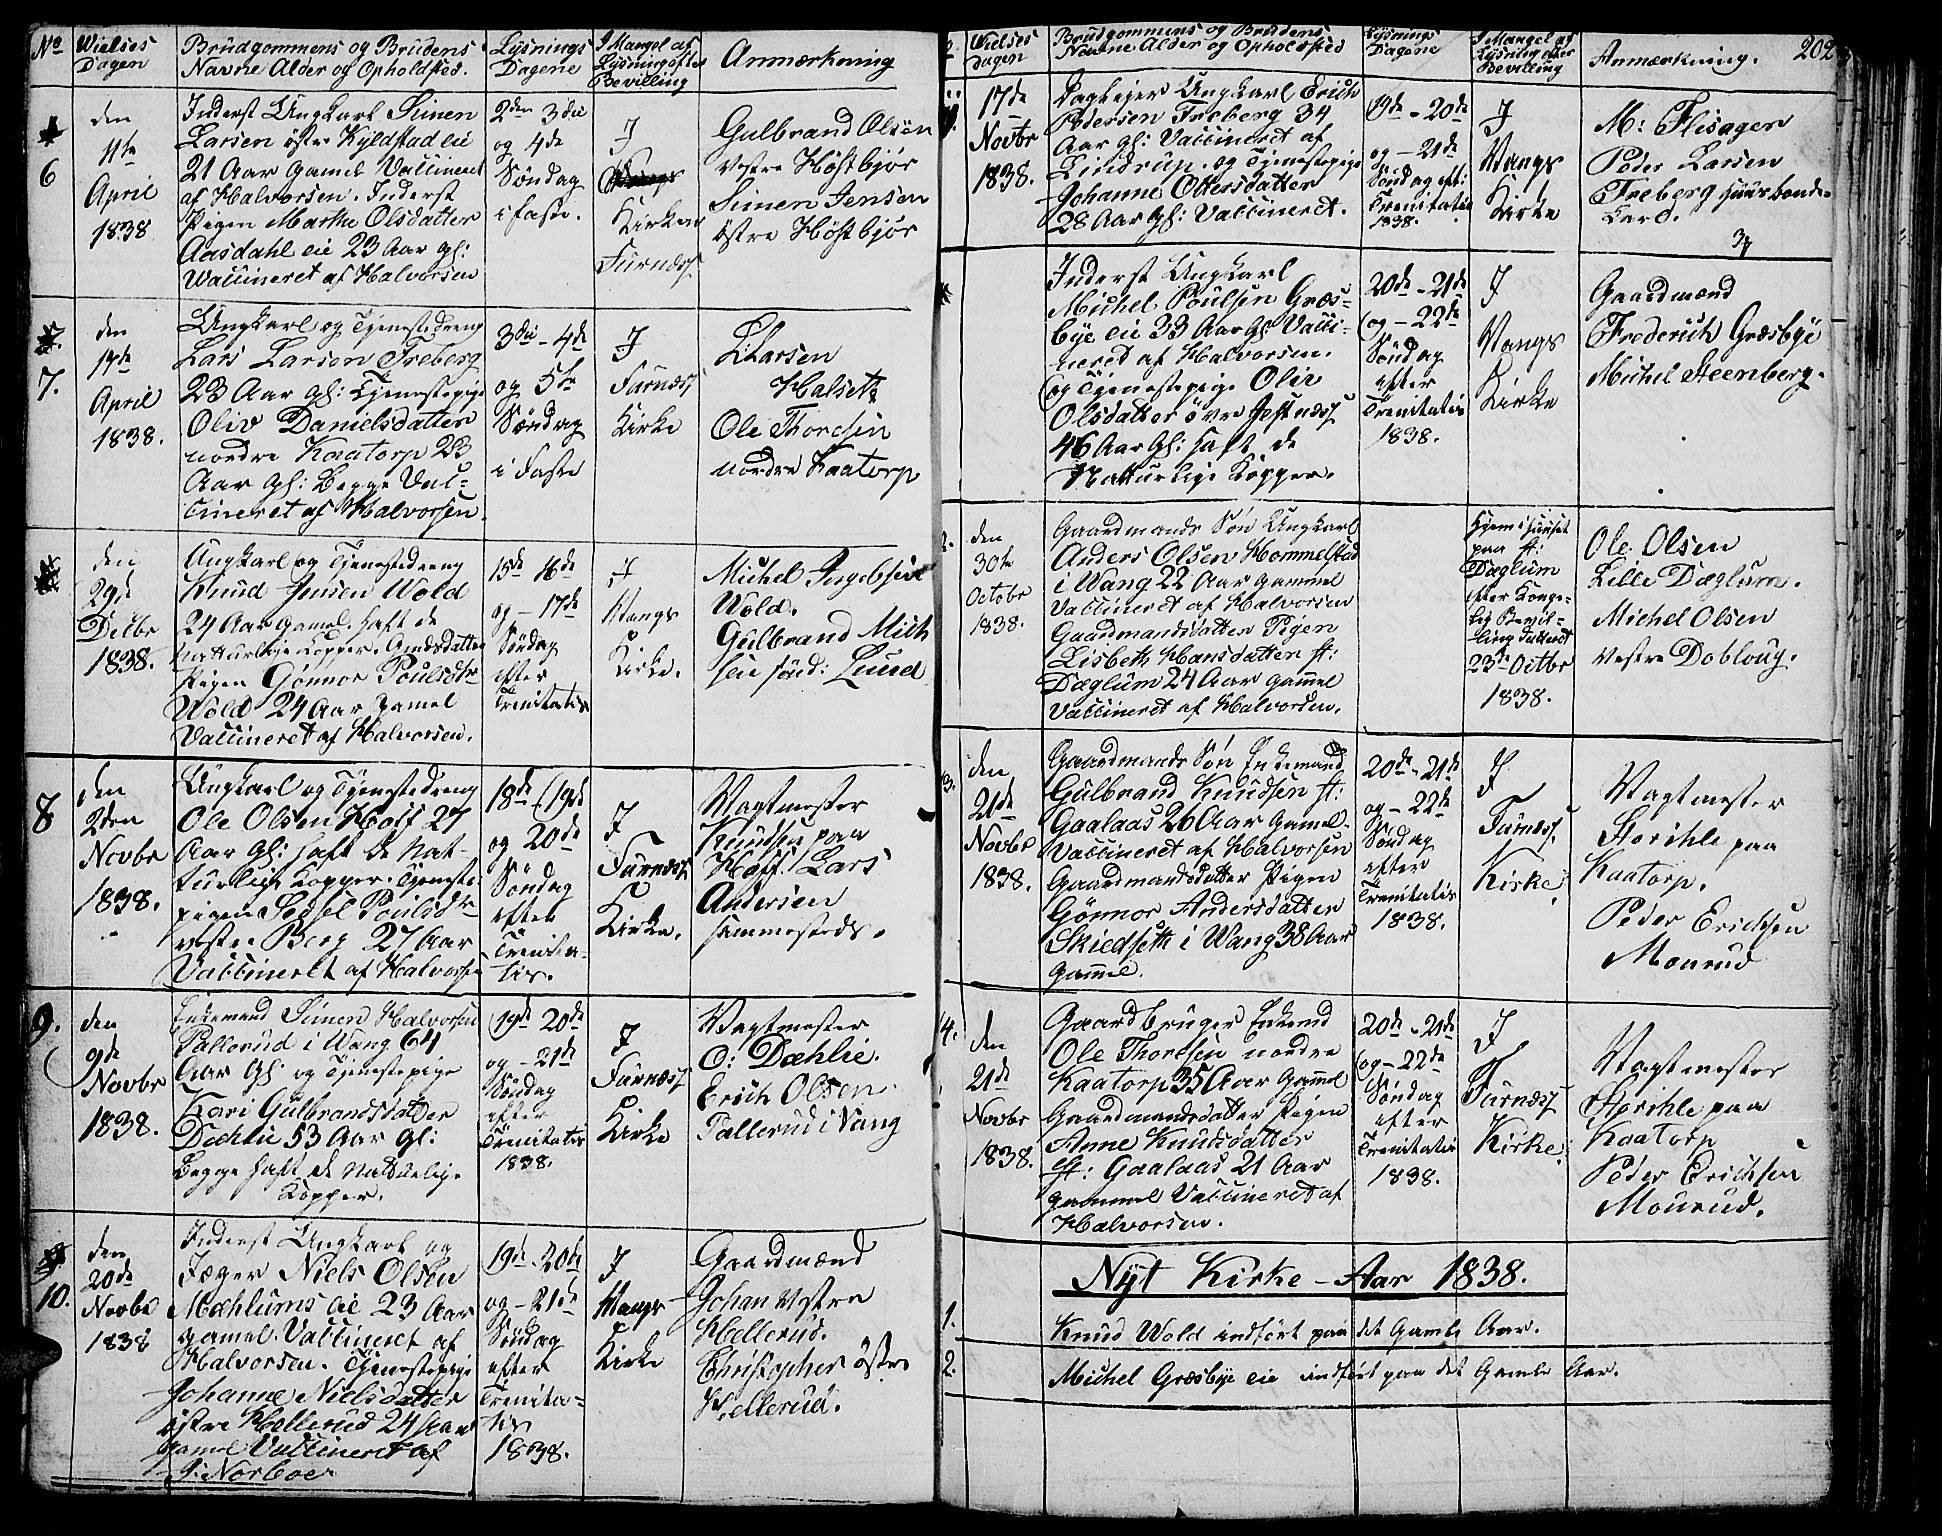 No
Wielses
Dagen
Brudgommens og Brudens
Navne Alder og Opholdsted.
Lysnings
Dagene
I Mangel af
Lysning efter
Bevilling
Anmærkning
6
den
11te
April
1838
Inderst Ungkarl Simen
Larsen østre Kyldstad eie
21 Aar gamel Vaccineret
af Halvorsen. Inderst
Pigen Marthe Olsdatter
Aasdahl eie 23 Aar gl:
Vaccineret af Halvorsen
2den 3die
og 4de
Søndag
i faste.
I
Kirken
Furnæss
Gulbrand Olsen
vestre Høstbjør
Simen Jensen
østre Høstbjør
7.
den
April
1838.
Ungkarl og Tjenestedreng
Lars Larsen Freberg
23 Aar gl: Tjenestepige
Oliv Danielsdatter
nordre Kaatorp 23
Aar gl: Begge Vac-
cineret af Halvorsen.
3die - 4de
og 5te
Søndag
i Faste
I
Furnæss
Kirke
L: Larsen
Halseth
Ole Thordsen
nordre Kaatorp
den
29de
Decbr
1838.
Ungkarl og Tjenestedreng
Knud Jensen Wold
24 Aar gamel. haft de
natturlige Kopper.
Pigen Gønnor Poulsdtr
Wold 24 Aar gamel
Vaccineret af Halvorsen.
15de 16de
og - 17de
Søndag
efter
Trenitatis
I
Vangs
Kirke.
Michel Ingebsen
Wold.
Gulbrand Mich
sen sønd: Lund
8
den
2den
Novbr
1838.
Ungkarl og Tjenestedreng
Ole Olsen Hoff 27
Aar gl: haft de Nat-
turlige Kopper. Tjeneste-
pigen Sedsel Poulsdtr
vestre Berg 27 Aar
Vaccineret af Halvorsen
18de 19de
og 20de
Søndag
efter
Trenita-
tis.
I
Furnæss
Kirke.
Vagtmester
Knudsen paa
Hoff. Lars
Andersen
sammesteds.
9.
den
9de
Novbr
1838.
Enkemand Simen Halvorsen
Pallerud i Wang 64
Aar Gl: og Tjenestepige
Kari Gulbrandsdatter
Dæhlie 53 Aar gl:
Begge haft de Natturlige
Kopper.
19de 20de
og - 21de
Søndag
efter
Trenitatis
1838.
I
Furnæss
Kirke
Vagtmester
O: Dæhlie.
Erich Olsen
Pallerud i Vang
10.
den
20de
Novbr
1838
Inderst Ungkarl og
Jæger Niels Olsen
Mæhlums eie 23 Aar
gamel. Vaccineret af
Halvorsen. Tjenestepige
Johanne Nielsdatter
østre Hellerud 24 Aar
gamel Vaccineret af
J: Norboe
19de - 20de
og - 21de
Søndag
efter
Trenita-
tis
1838.
I
Vangs
Kirke
Gaardmænd
Johan Vestre
Hellerud.
Christopher østre
Hellerud.
Wielses
Dagen
Brudgommens og Brudens
Navne Alder og Opholdsted
Lysnings
Dagene
I Mangel af
Lysning efter
Bevilling
Anmærkning.
202
17de
Novbr
1838.
Ungkarl Erich
Pedersen Freberg 34
Aar gl: Vaccineret af
Lindrup. og Tjenestepige
Johanne Ottersdatter
28 Aar gl: Vaccineret.
19de - 20de
og - 21de
Søndag eft:
Trenitatis
1838.
I
Vangs
Kirke
M: Flisagen
Peder Larsen
Freberg
Inderst Ungkarl
Michel Poulsen Græs-
bye eie 33 Aar Gl Vacci-
neret af Halvorsen.
og Tjenestepige Oliv
Olsdatter øvre Jestnæss
46 Aar Gl: haft de
Natturlige Kopper.
20de - 21de
og - 22de
Søndag
efter
Trenitatis
1838.
I
Vangs
Kirke
Gaardmænd
Frederich Græsbye
Michel Steenberg.
2.
den
30te
Octobr
1838.
Gaardmands Søn Ungkarl
Anders Olsen Hommelstad
i Wang 22 Aar gammel
Vaccineret af Halvorsen
Gaardmandsdatter Pigen
Lisbeth Hansdatter st:
Dæglum 24 Aar gammel
Vaccineret af Halvorsen.
Hjem i Huuset
paa st:
Dæglum
efter Konge-
lig Bevil-
ling datteret
23de Octbr
1838.
Ole Olsen
Lille Dæglum.
Michel Olsen
vestre Dobloug.
3.
den
21de
Novbr
1838.
Gaardmands Søn Enkemand
Gulbrand Knudsen st:
Gaalaas 26 Aar gamel.
Vaccineret af Halvorsen
Gaardmandsdatter Pigen
Gønnor Andersdatter
Skiedseth i Wang 38 Aar
gamel.
20de - 21de
og - 22de
Søndag
efter
Trenitatis
1838.
I
Furnæss
Kirke.
Vagtmester
Storihle paa
Kaatorp.
Peder Ericksen
Mourud
4.
den
21de
Novbr
1838.
Gaardbruger Enkemd
Ole Thordsen nordre
Kaatorp 35 Aar gammel
Gaardmandsdatter Pigen
Anne Knudsdatter
st: Gaalaas 21 Aar
gammel Vaccineret af
Halvorsen.
20de - 21de
og - 22de
Søndag
efter
Trenitatis
1838.
I
Furnæss
Kirke.
Vagtmester
Storihle paa
Kaatorp
Peder Ericksen
Mourud.
Nyt Kirke - Aar 1838.
1.
Knud Wold indført paa det Gamle Aar.
2.
Michel Græsbye eie indført paa det Gamle Aar.